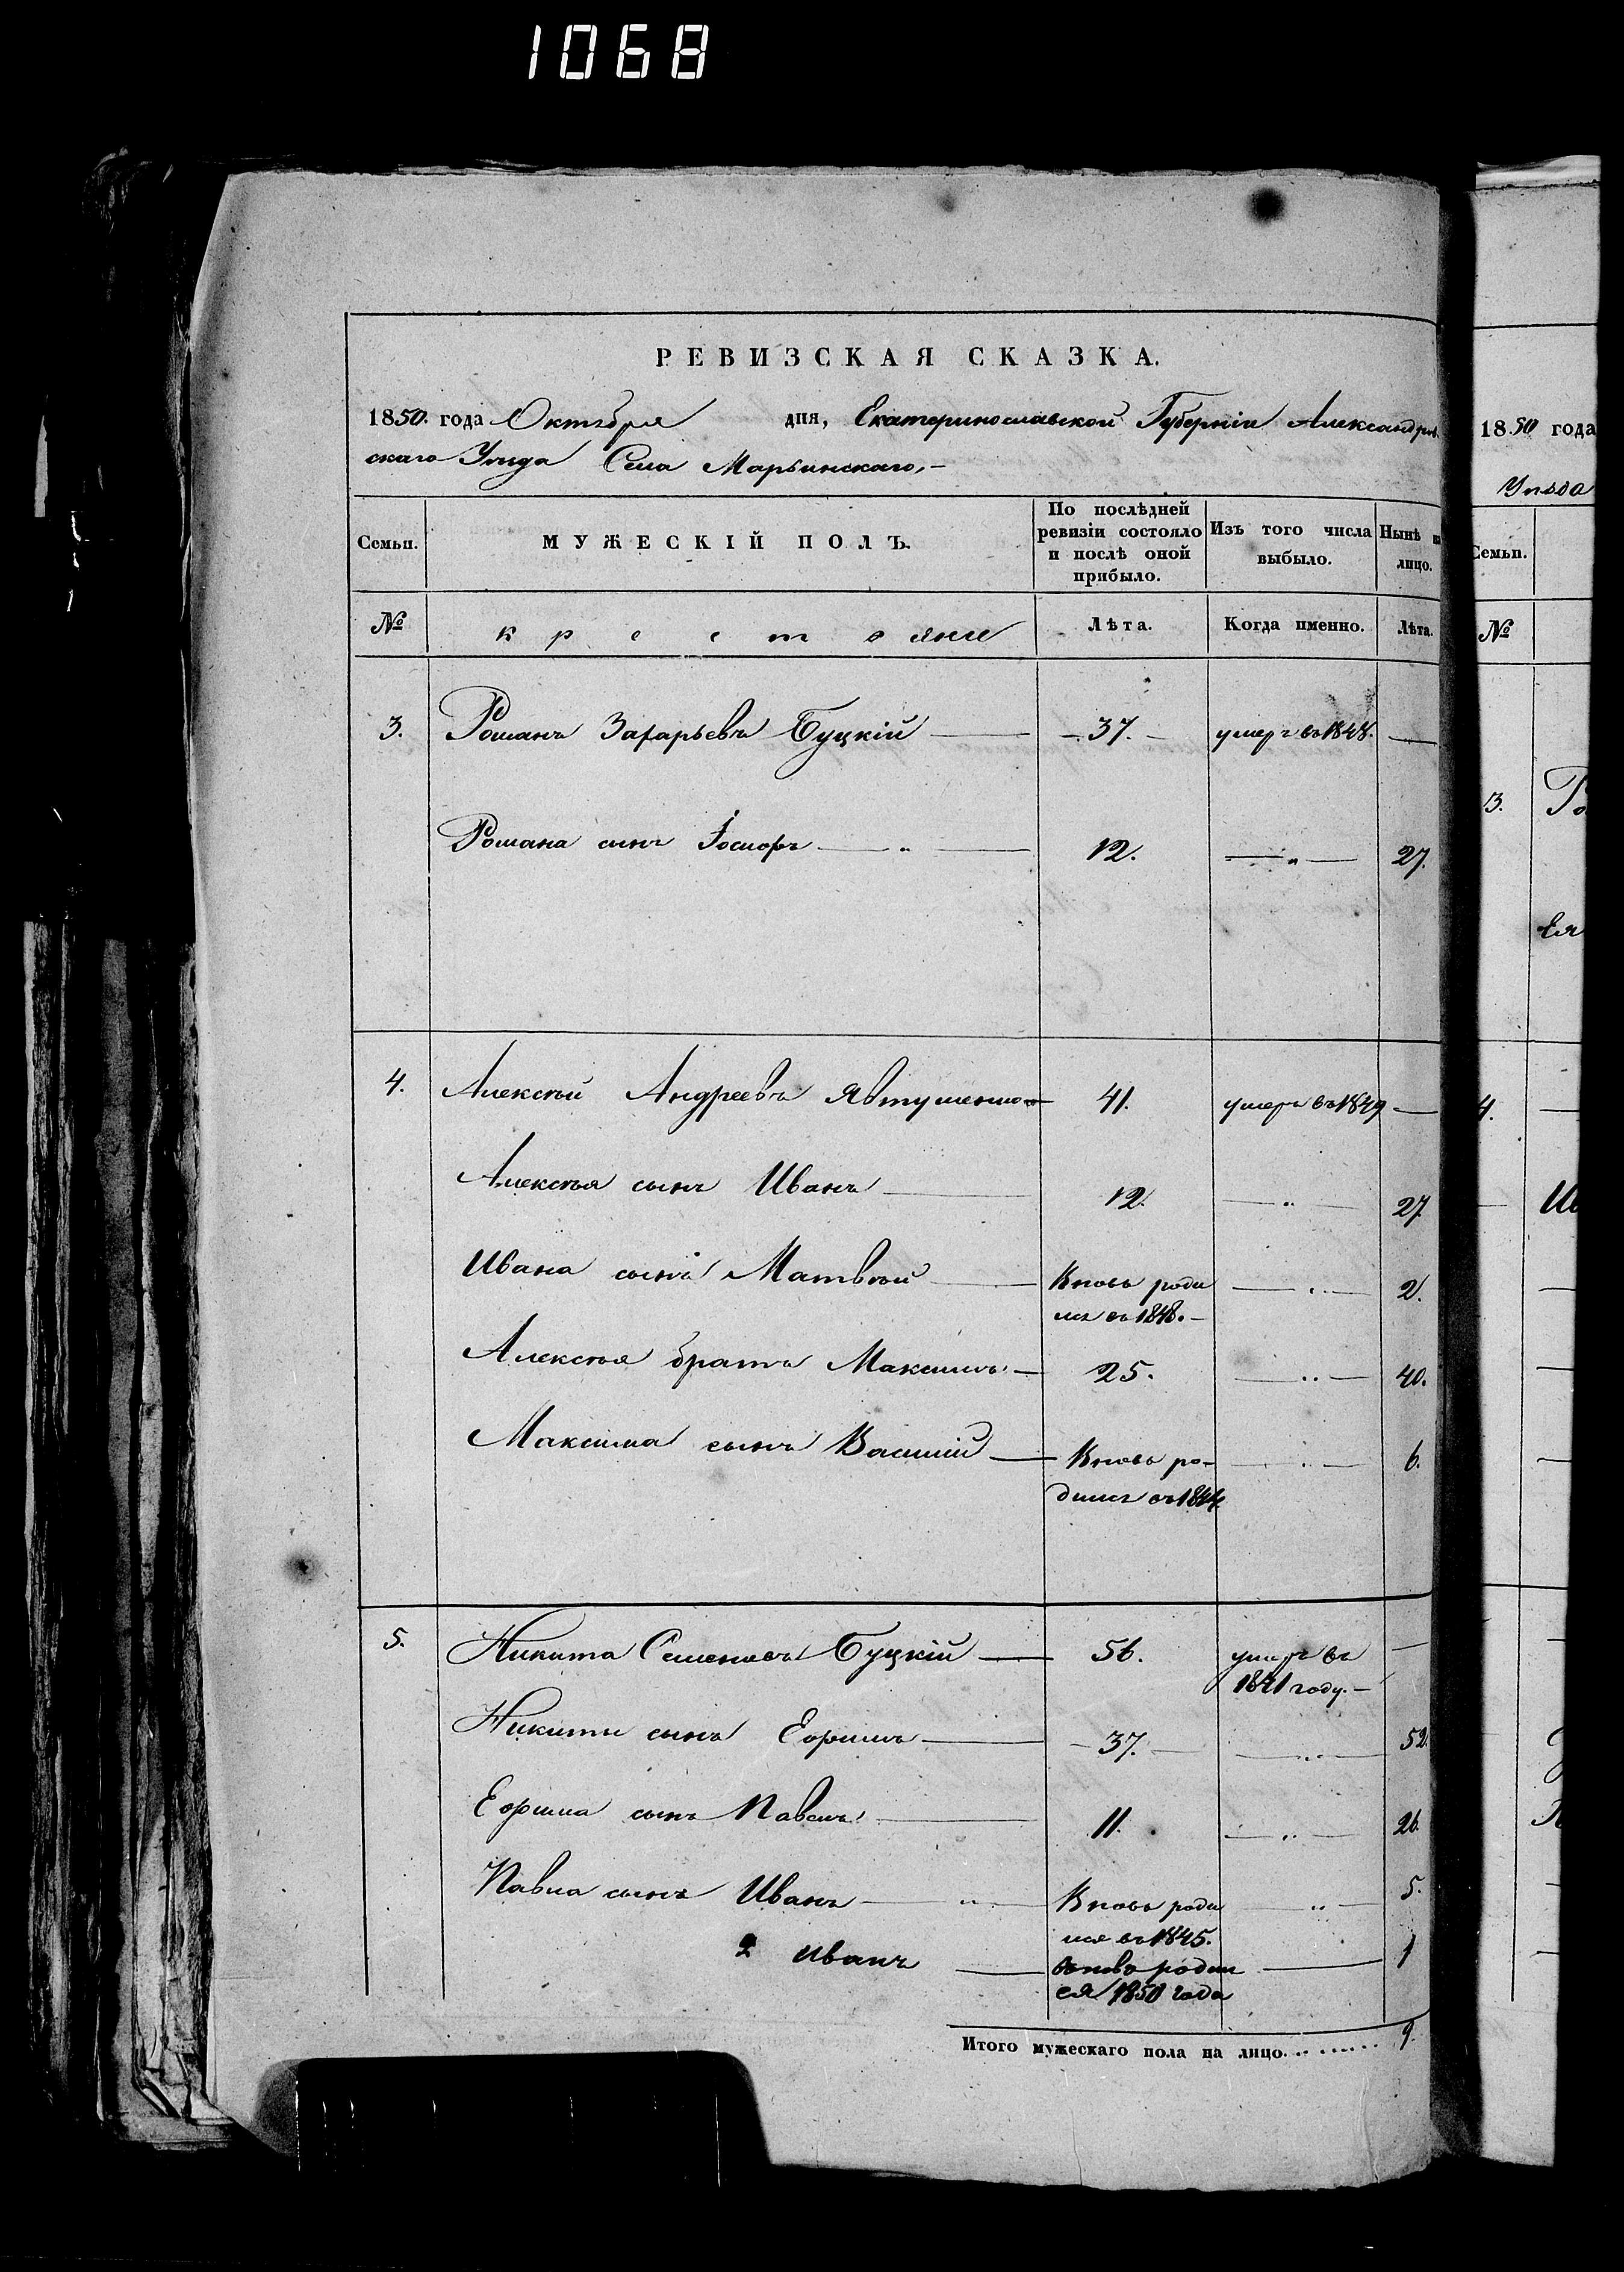 1068
РЕВИЗСКАЯ СКАЗКА.
1850. года Октября дня, Екатеринославской Губерніи Александров
скаго Уѣзда Села Марьинскаго,-
Семьи. МУЖЕСКІЙ ПОЛЪ. По послѣдней ревизіи состояло и послѣ оной прибыло. Изъ того числа выбыло. Нынѣ на лицо.
№ крестьяне Лѣта. Когда именно. Лѣта.
3. Романъ Захарьевъ Буцкій 37. умеръ въ 1848.
Романа сынъ Іосифъ 12. 27.
4. Алексѣй Андреевъ Явтушенко 41. умеръ въ 1849
Алексѣя сынъ Иванъ 12. 27
Ивана сынъ Матвѣй Вновь роди 2.
лся въ 1848.
Алексѣя братъ Максимъ 25. 40.
Максима сынъ Василій Вновь ро- 6.
дился въ 1844
5. Никита Семеновъ Буцкій 56. умеръ въ
1841 году.
Никиты сынъ Ефимъ 37. 52.
Ефима сынъ Павелъ 11. 26.
Павла сынъ Иванъ Вновь роди 5.
лся въ 1845.
2 Иванъ вновь родил 1
ся 1850 года
Итого мужескаго пола на лицо. 9.
1850 года
Уѣзда
Семьи.
№
3.
Ея
4.